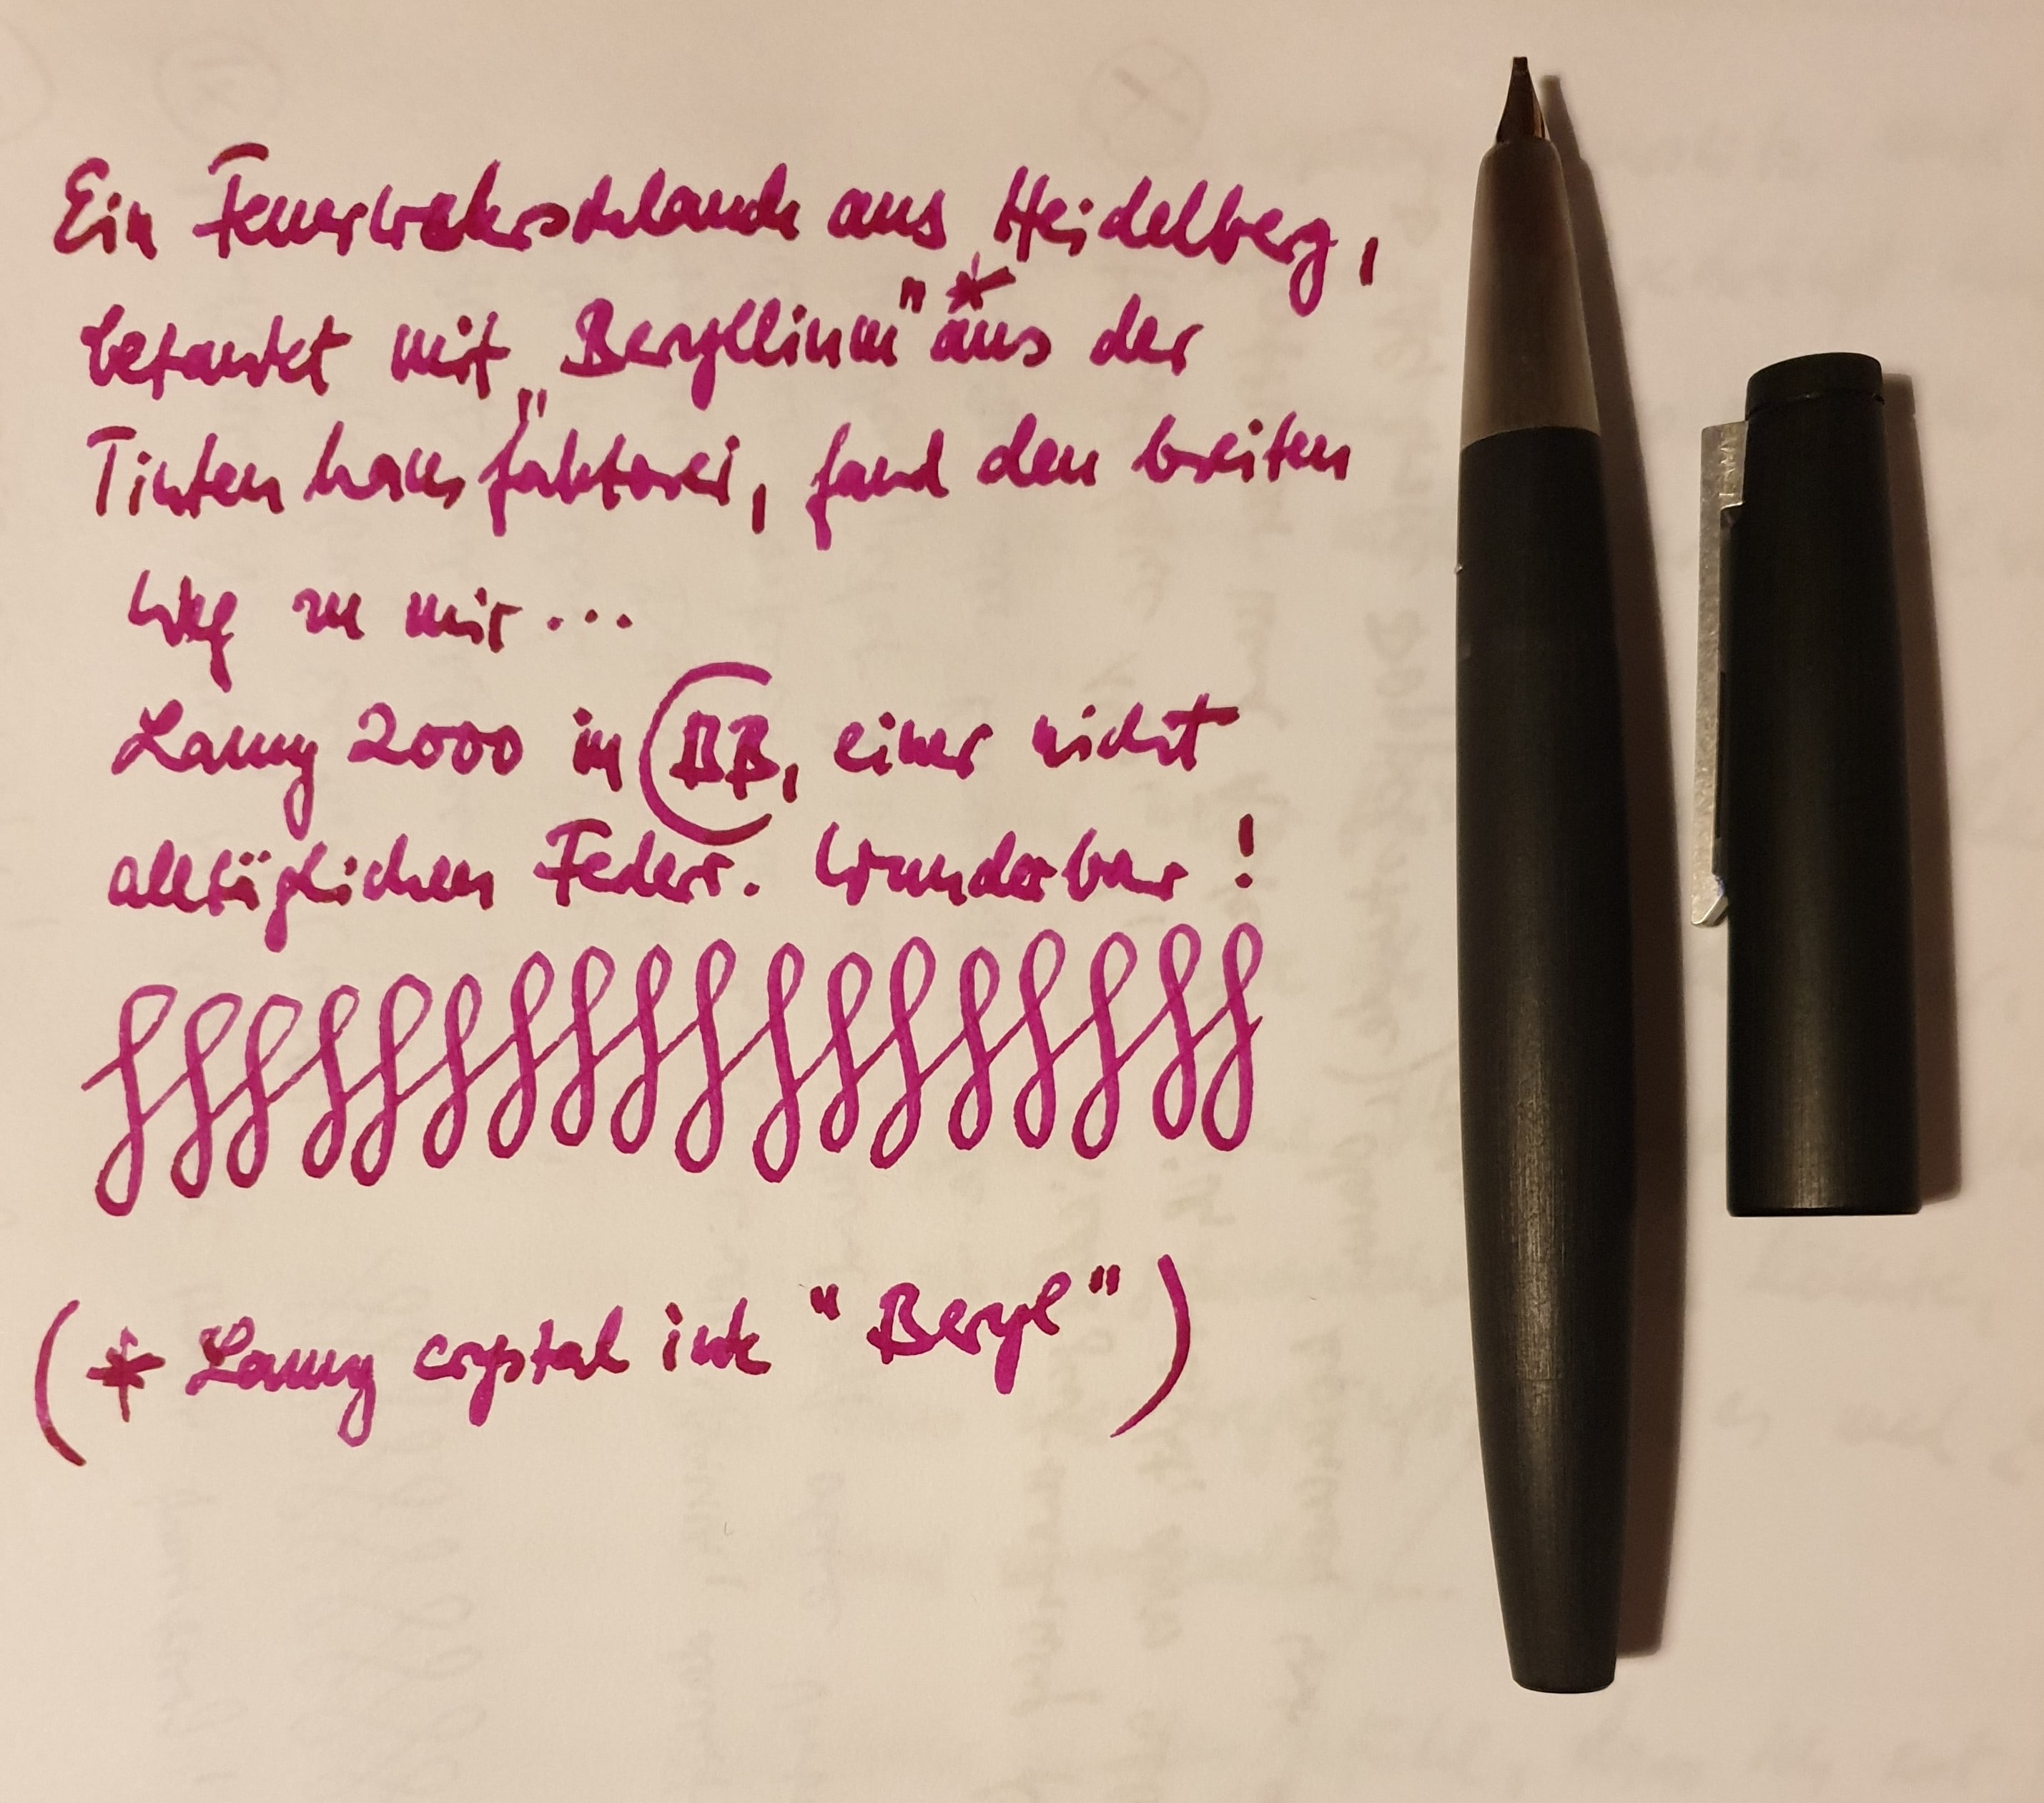 Ein Feuerwehrschlauch aus Heidelberg,
betankt mit „Beryllium"* aus der
Tintenhausfaktorei, fand den breiten
Weg zu mir...
Lamy 2000 in BB, einer nicht
alltäglichen Feder. Wunderbar!
(* Lamy crystal ink "Beryl")
LAMY